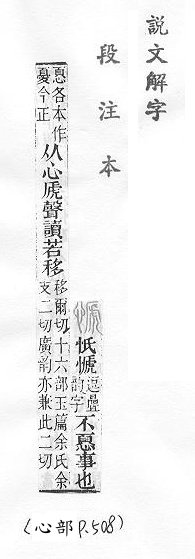 說文解字
段注本
㥴忯㥴逗疊韵字不𢝊事也
𢝊各本作憂今正从心虒聲讀若移移爾切十六部玉篇余氏余支二切廣韵亦兼此二切
(心部 P.508)